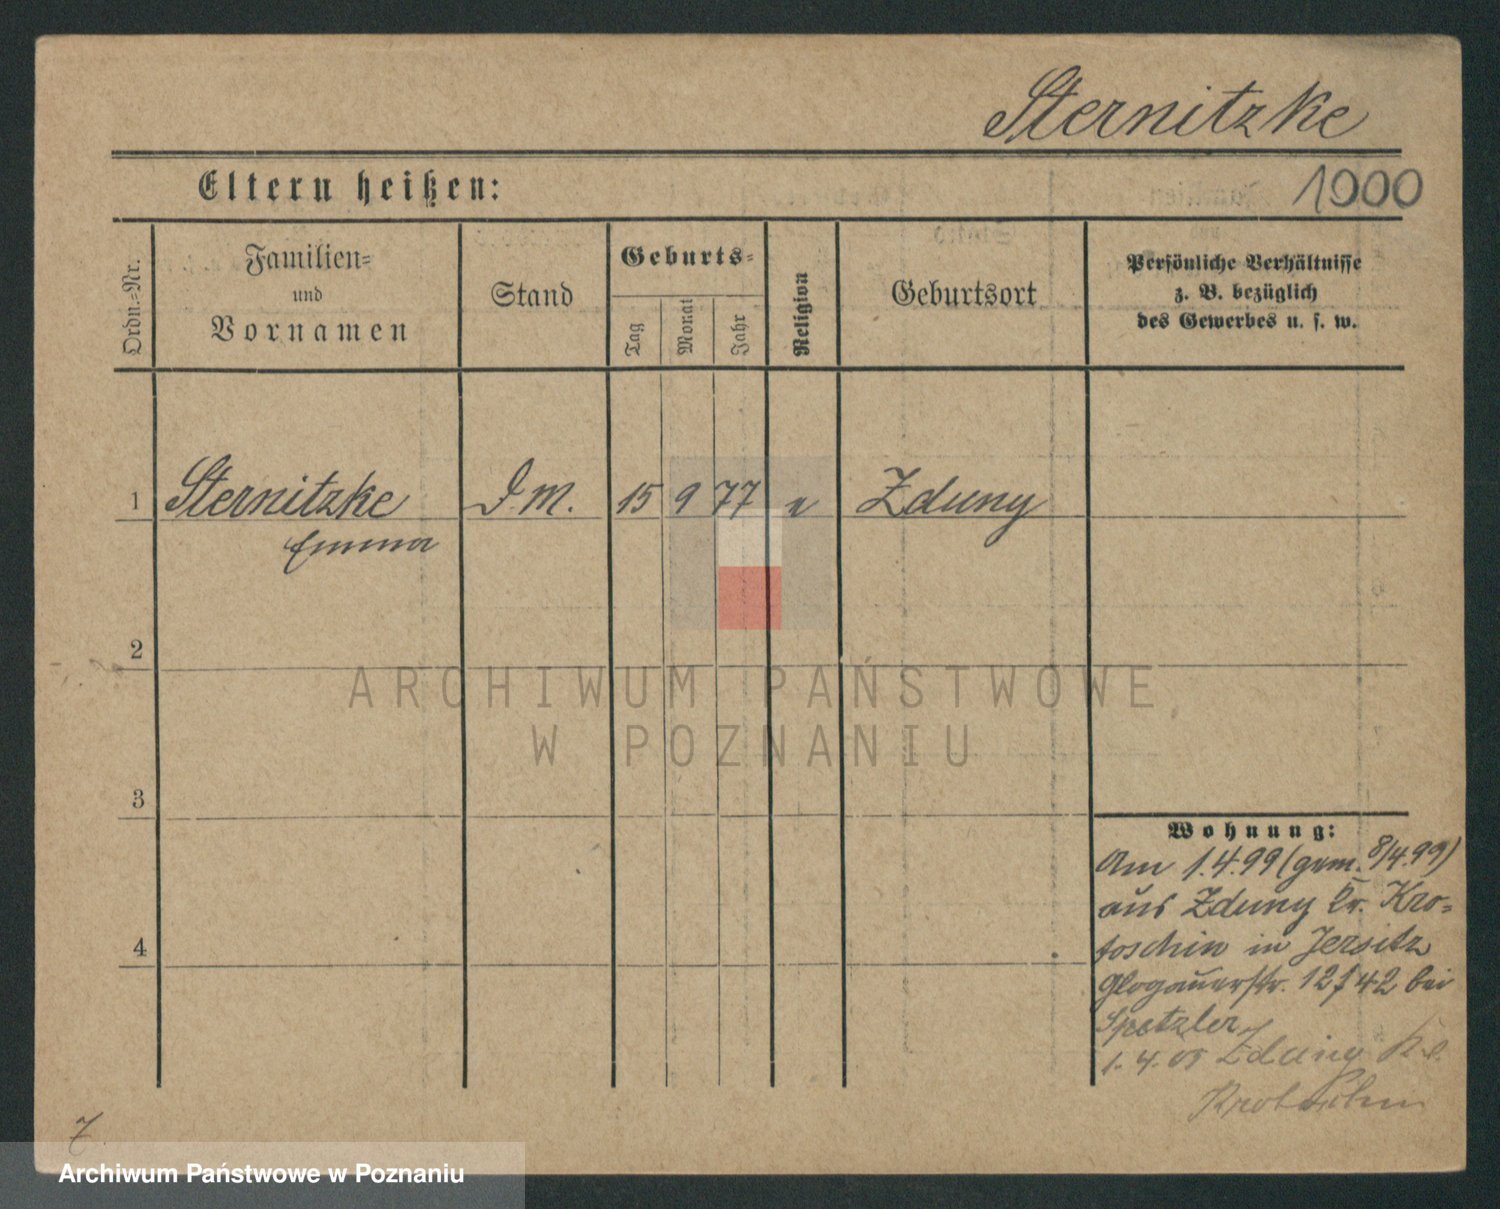 Sternitzke
Eltern heißen:
1900
Ordn.=Nr.
Familien=
und
Vornamen
Stand
Geburts=
Tag
Monat
Jahr
Religion
Geburtsort
Persönliche Verhältnisse
z. B. bezüglich
des Gewerbes u. s. w.
1 Sternitzke D. M. 15 9 77 e Zduny
Emma
2
3
4
Wohnung:
Am 1.4.99 (gem. 8/4.99)
aus Zduny Kr. Kro=
toschin in Jersitz
Glogauerstr. 42 bei
Spetzler
1. 4. 05 Zduny Kr.
Krotoschin
ARCHIWUM PAŃSTWOWE
W POZNANIU
Archiwum Państwowe w Poznaniu